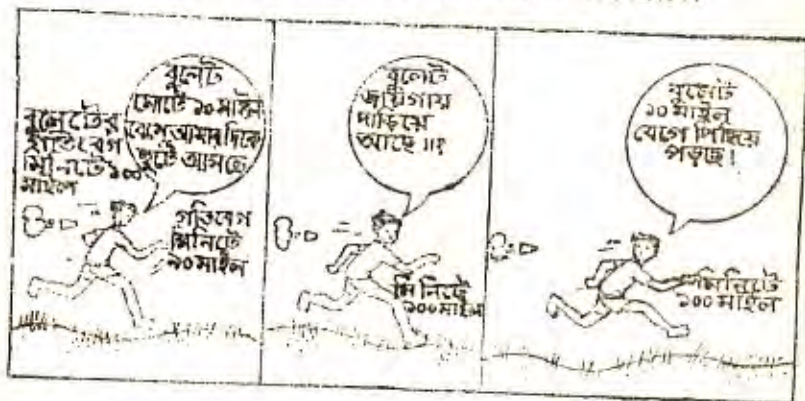 বুলেটের
গতিবেগ
মিনিটে ১০০
মাইল
বুলেট
মোটে ১০ মাইল
বেগে আমার দিকে
ছুটে আসছে
গতিবেগ
মিনিটে
৯০ মাইল
বুলেট
জায়গায়
দাঁড়িয়ে
আছে !!!
মিনিটে
১০০ মাইল
বুলেট
১০ মাইল
বেগে পিছিয়ে
পড়ছে !
মিনিটে